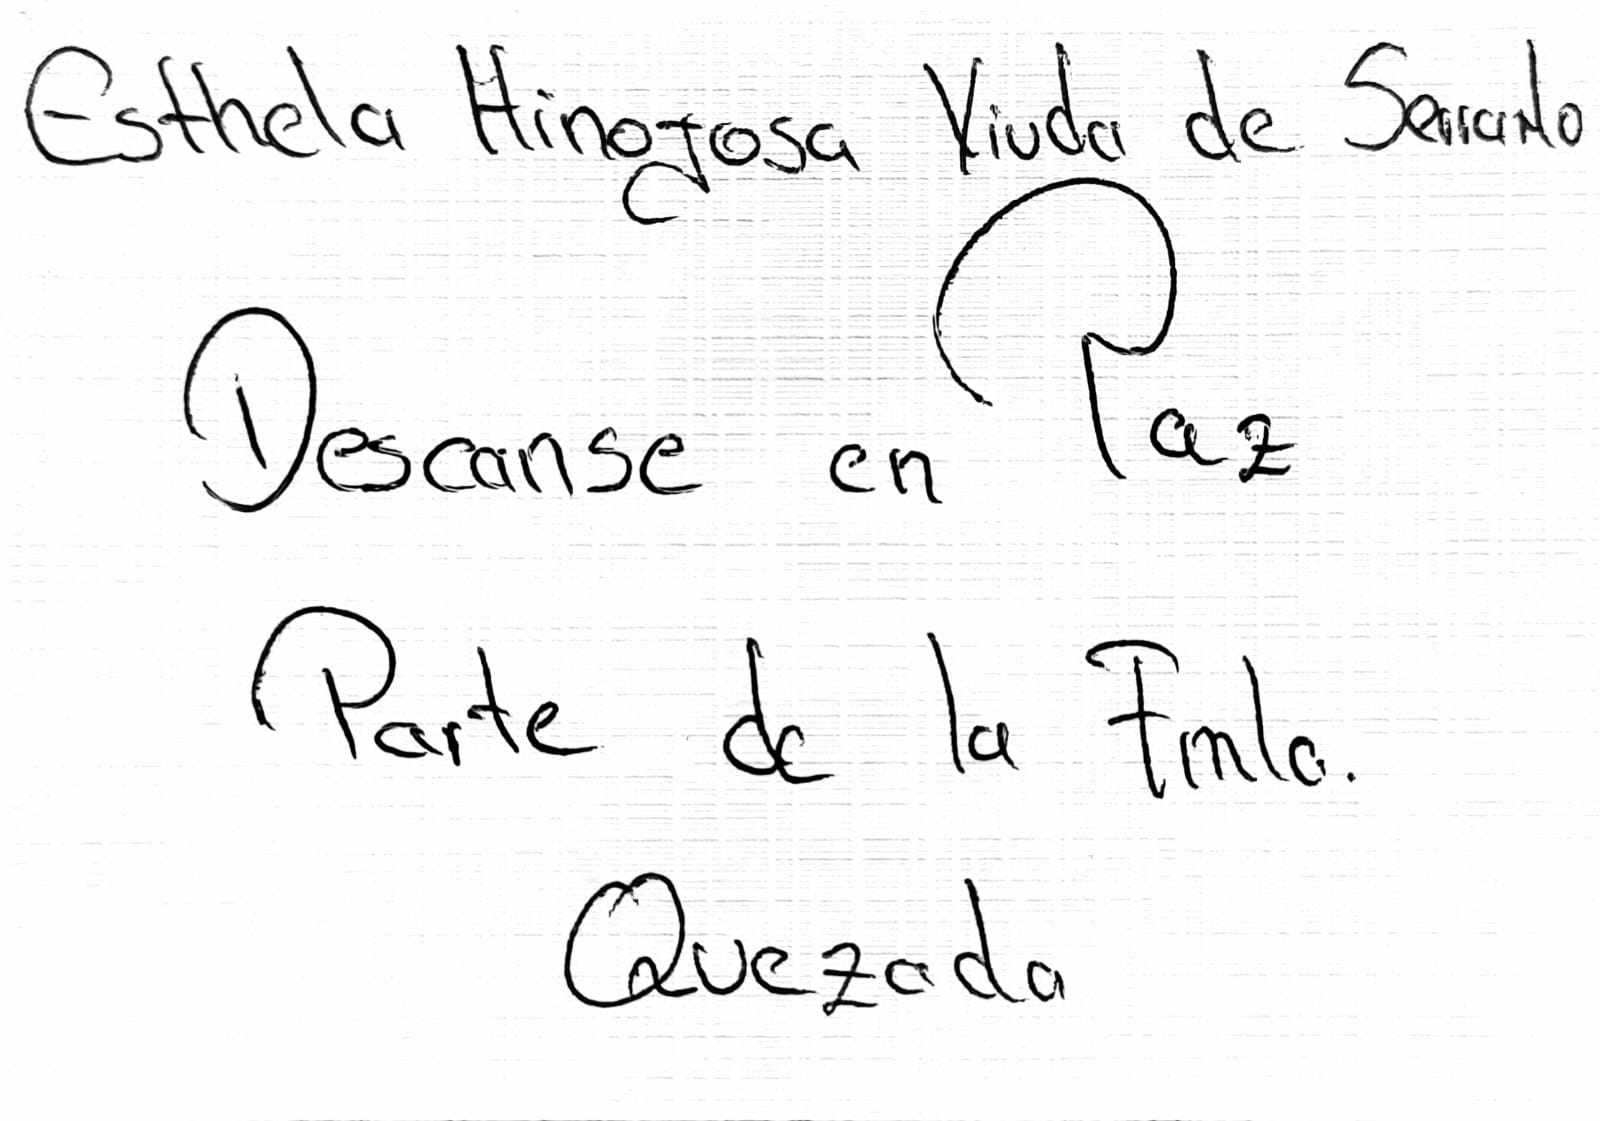 Esthela Hinojosa Viuda de Serrano
Descanse en Paz
Parte de la Fmla.
Quezada